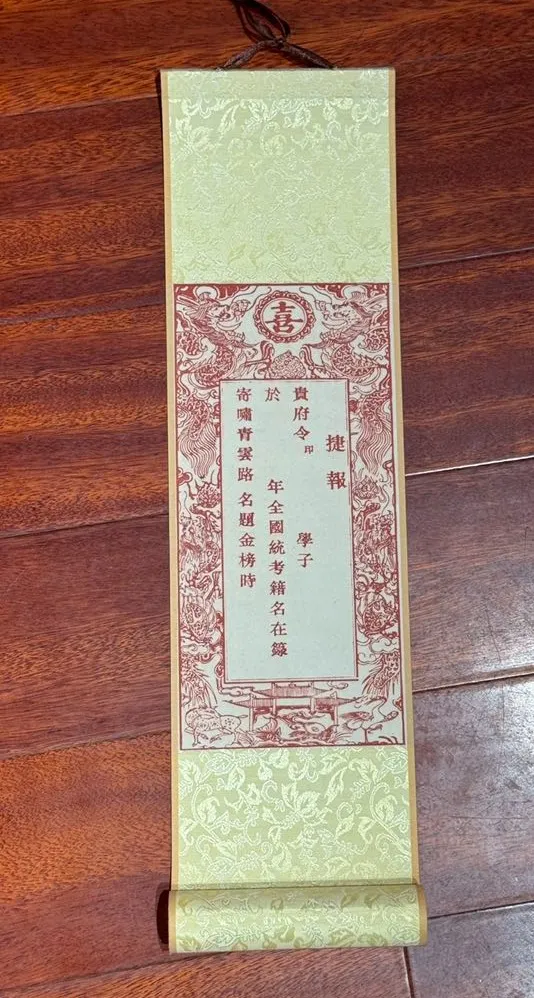 喜
捷報
貴府令印 學子
於 年全國統考籍名在籙
寄嘯青雲路 名題金榜時